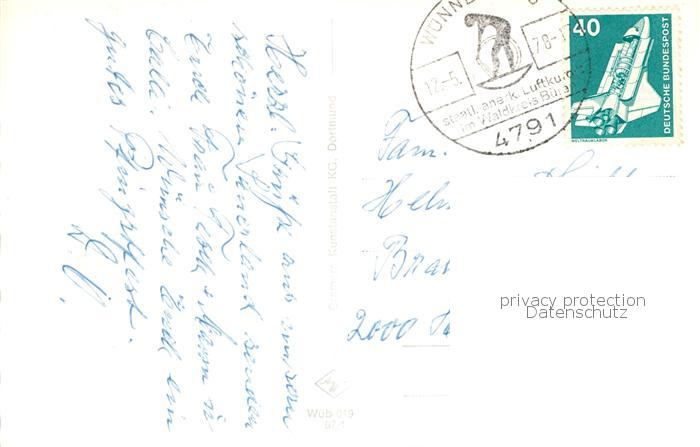 Herzl. Grüße aus unserm
schönen Sauerland senden
Euch Frau
Cilli. Wünsche Euch ein
gutes Pfingstfest.
Cramers Kunstanstalt KG, Dortmund
Wüb 019
WÜNNE
12.-5.
78-1
staatl. anerk. Luftkur
im Waldkreis Büre
4791
40
DEUTSCHE BUNDESPOST
WELTRAUMLABOR
Fam.
Hel
Bra
2000
privacy protection
Datenschutz